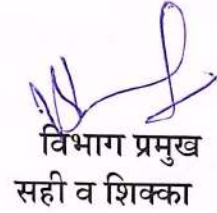 विभाग प्रमुख
सही व शिक्का